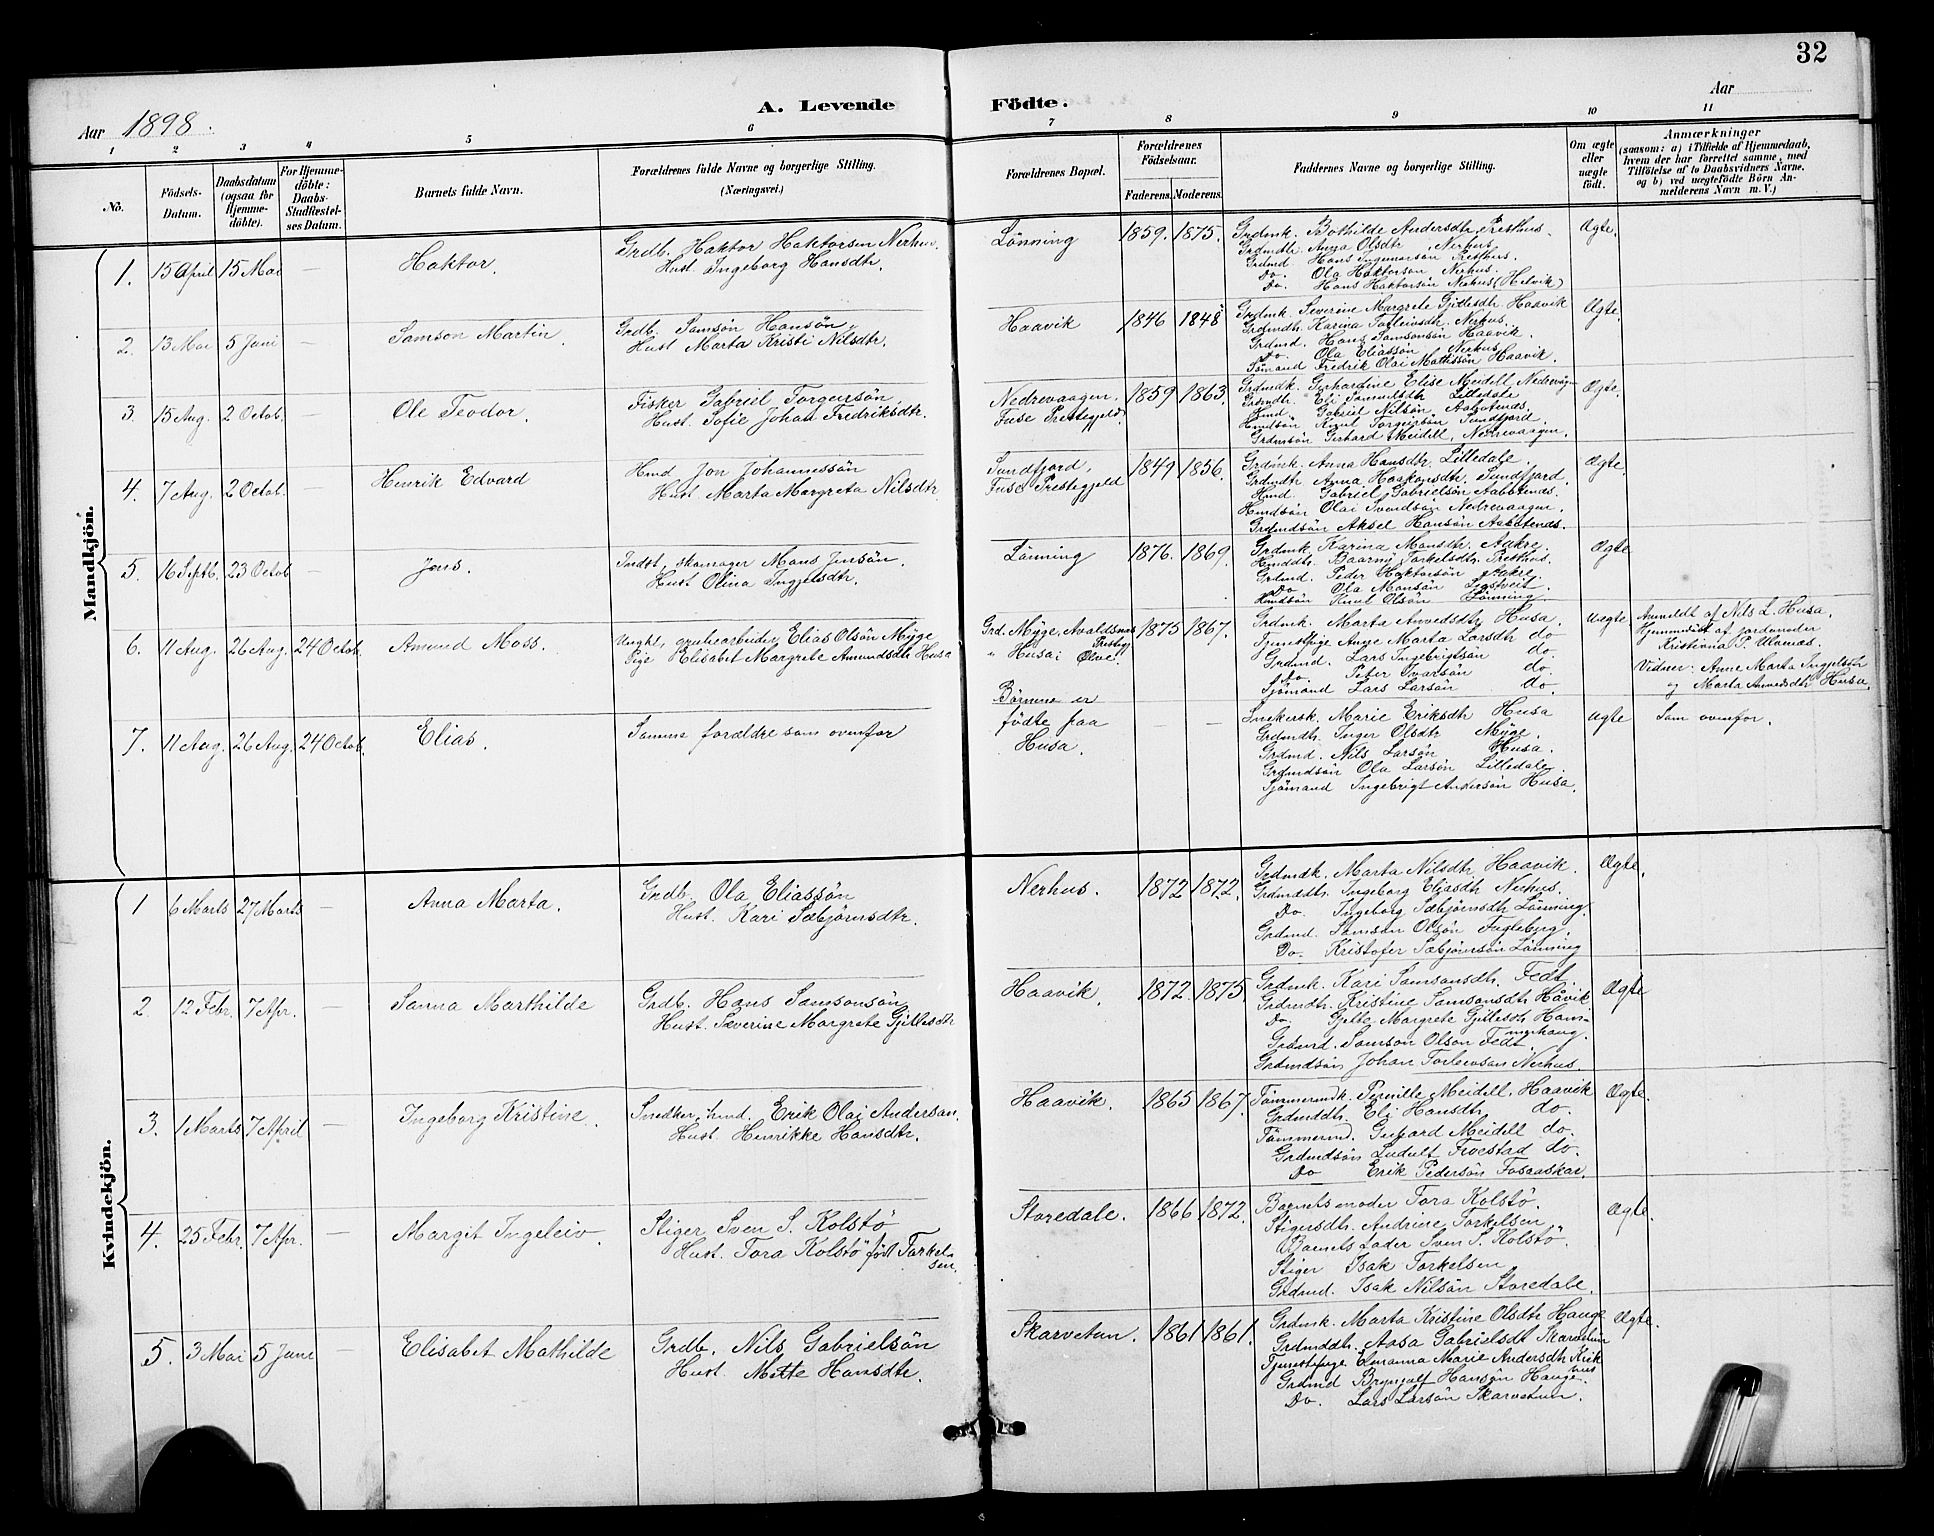 32
A. Levende Födte.
Aar 1898.
Aar
1 2 3 4 5 6 7 8 9 10 11
No.
Födsels-Datum.
Daabsdatum (ogsaa for Hjemme-döbte).
For Hjemme-döbte: Daabs-Stadfæstel-ses Datum.
Barnets fulde Navn.
Forældrenes fulde Navne og borgerlige Stilling.
(Næringsvei.)
Forældrenes Bopæl.
Forældrenes Födselsaar.
Faderens. Moderens.
Faddernes Navne og borgerlige Stilling.
Om ægte eller uægte födt.
Anmærkninger
(saasom: a) i Tilfælde af Hjemmedaab, hvem der har forrettet samme, med Tilföielse af to Daabsvidners Navne. og b) ved uægtefödte Börn An-melderens Navn m. V.)
Mandkjön.
1. 15 April 15 Mai — Haktor. Grdb. Haktor Haktorsen Nerhus.
Hust. Ingeborg Hansdtr.
Lönning 1859. 1875. Grdmk. Bothilde Andersdtr Presthus.
Grdmdtr. Anna Olsdtr, Nerhus.
Grdmd Hans Ingemarson Presthus.
Do. Ola Haktorsön Nerhus.
Do. Hans Haktorsön Nerhus (Helvik)
Ægte.
2. 13 Mai 5 Juni — Samson Martin. Grdb. Samsön Hansön.
Hust Marta Kristi Nilsdtr.
Haavik 1846 1848 Grdmk. Severine Margrete Gjillesdtr. Haavik
Grdmdtr. Karina Torleivsdtr. Nerhus.
Grdmd. Hans Samsonsön Haavik.
Do. Ola Eliassön Nerhus.
Sömand Fredrik Olai Mathissön Haavik.
Ægte.
3. 15 Aug. 2 Octob. — Ole Teodor. Fisker Gabriel Torgersön,
Hust. Sofie Johan Fredriksdtr.
Nedrevaagen.
Fuse Prestegjeld
1859 1863. Grdmdk. Gerhardine Elise Meidell Nedrevåg
Grdmdtr. Eli Samuelsdtr Lilledale
Hmd. Gabriel Nilsön, Aabotenæs.
Hmdsön Knut Torgersön Sundfjord
Grdmsön Gerhard Meidell, Nedrevaagen.
Ægte.
4. 7 Aug. 2 Octob. — Henrik Edvard Hmd Jon Johannessön
Hust. Marta Margreta Nilsdtr
Sundfjord,
Fuse Prestegjeld
1849 1856. Grdmk. Anna Hansdtr. Lilledale.
Grdmdtr Anna Haakonsdtr. Sundfjord.
Hmd Gabriel Gabrielsön Aabotenæs.
Hmdsön Olai Svendsön Nedrevaagen.
Grdmdsön Aksel Hansön Aabotenæs.
Ægte.
5. 16 Septb. 23 Octob — Jens. Indst, skomager Mons Jensön.
Hust. Olina Ingjelsdtr.
Lönning 1876. 1869. Grdmk Karina Monsdtr. Aakre.
Hmddtr. Baarni Torkelsdtr. Presthus.
Grdmd. Peder Haktorsön Aakre.
Do Ola Monsön Ligstveit
Hmdsön Knut Olsön Lönning.
Ægte
6. 11 Aug. 26 Aug. 24 Octob. Amund Moss. Ungkl, grubearbeider, Elias Olsön Myge
Pige Elisabet Margrete Amundsdtr. Husa
Grd. Myge, Avaldsnæs Prestg.
" Husa i Ølve.
1875 1867. Grdmk. Marta Anvedsdtr Husa.
Tjenestpige Ane Marta Larsdtr do
Grdmd. Lars Ingebrigtsön do.
Do. Peter Ivarsön do
Sjömand Lars Larsön do.
Uægte Anmeldt af Nils L. Husa.
Hjemmedöbt af jordemoder
Kristiana P. Ulvenæs.
Vidner: Anne Marta Ingjelsdtr
og Marta Anvedsdtr Husa.
7. 11 Aug. 26 Aug. 24 Octob. Elias. Samme forældre som ovenfor
Börnene er
födte paa
Husa.
— Snekersk. Marie Eriksdtr Husa
Grdmdtr. Inger Olsdtr Myge.
Grdmd. Nils Larsön Husa.
Grdmdsön Ola Larsön Lilledale.
Sjömand Ingebrigt Andersön Husa.
uægte Som ovenfor.
Kvindekjön.
1 6 Marts 27 Marts — Anna Marta. Grdb. Ola Eliassön
Hust. Kari Sæbjörnsdtr.
Nerhus. 1872 1872. Grdmdk. Marta Nilsdtr Haavik.
Grdmdtr. Ingeborg Eliasdtr Nerhus.
Do. Ingeborg Sæbjörnsdtr Lönning.
Grdmd. Samson Olsön Fugleberg.
Do. Kristofer Sæbjörnsön Lönning
Ægte.
2. 12 Febr. 7 Apr. — Sanna Marthilde Grdb. Hans Samsonsön
Hust. Severine Margrete Gjillesdtr
Haavik. 1872. 1875. Grdmk. Kari Samsonsdtr. Fedt
Grdmdtr. Kristine Samsonsdtr Håvik
Do. Gjette Margrete Gjillesdtr Ham-
merhaug.
Grdmd. Samson Olson Fedt
Grdmdsön Johan Torleivson Nerhus.
Ægte
3. 1 Marts 7 April — Ingeborg Kristine. Snedker, hmd. Erik Olai Anderson.
Hust. Henrikke Hansdtr.
Haavik. 1865 1867. Tömmermdk. Pernille Meidell, Haavik
Grdmddtr. Eli Hansdtr. do.
Tömmermd. Gerhard Meidell do.
Grdmdsön Ludvlt Froestad do.
Do Erik Pedersön Fosaaskar.
Ægte.
4. 25 Febr. 7 Apr. — Margit Ingeleiv. Stiger Sven S. Kolstö
Hust. Tora Kolstö föd Torkel-
sen.
Storedale. 1866 1872. Barnets moder Tora Kolstö.
Stigersdtr. Andrine Torkelsen
Barnets fader Sven S. Kolstö.
Stiger Isak Torkelsen
Grdmd. Isak Nilsön Storedale.
Ægte.
5. 3 Mai 5 Juni — Elisabet Mathilde Grdb. Nils Gabrielsön
Hust. Mette Hansdtr.
Skarvetun. 1861 1861. Grdmk. Marta Kristine Olsdtr Hauge
Grdmddtr. Aasa Gabrielsdt Skarvetun
Tjenestepige Susanna Marie Andersdtr Krik
hus
Grdmd Bryngelf Hansön Hauge.
Do. Lars Larsön Skarvetun.
Ægte.